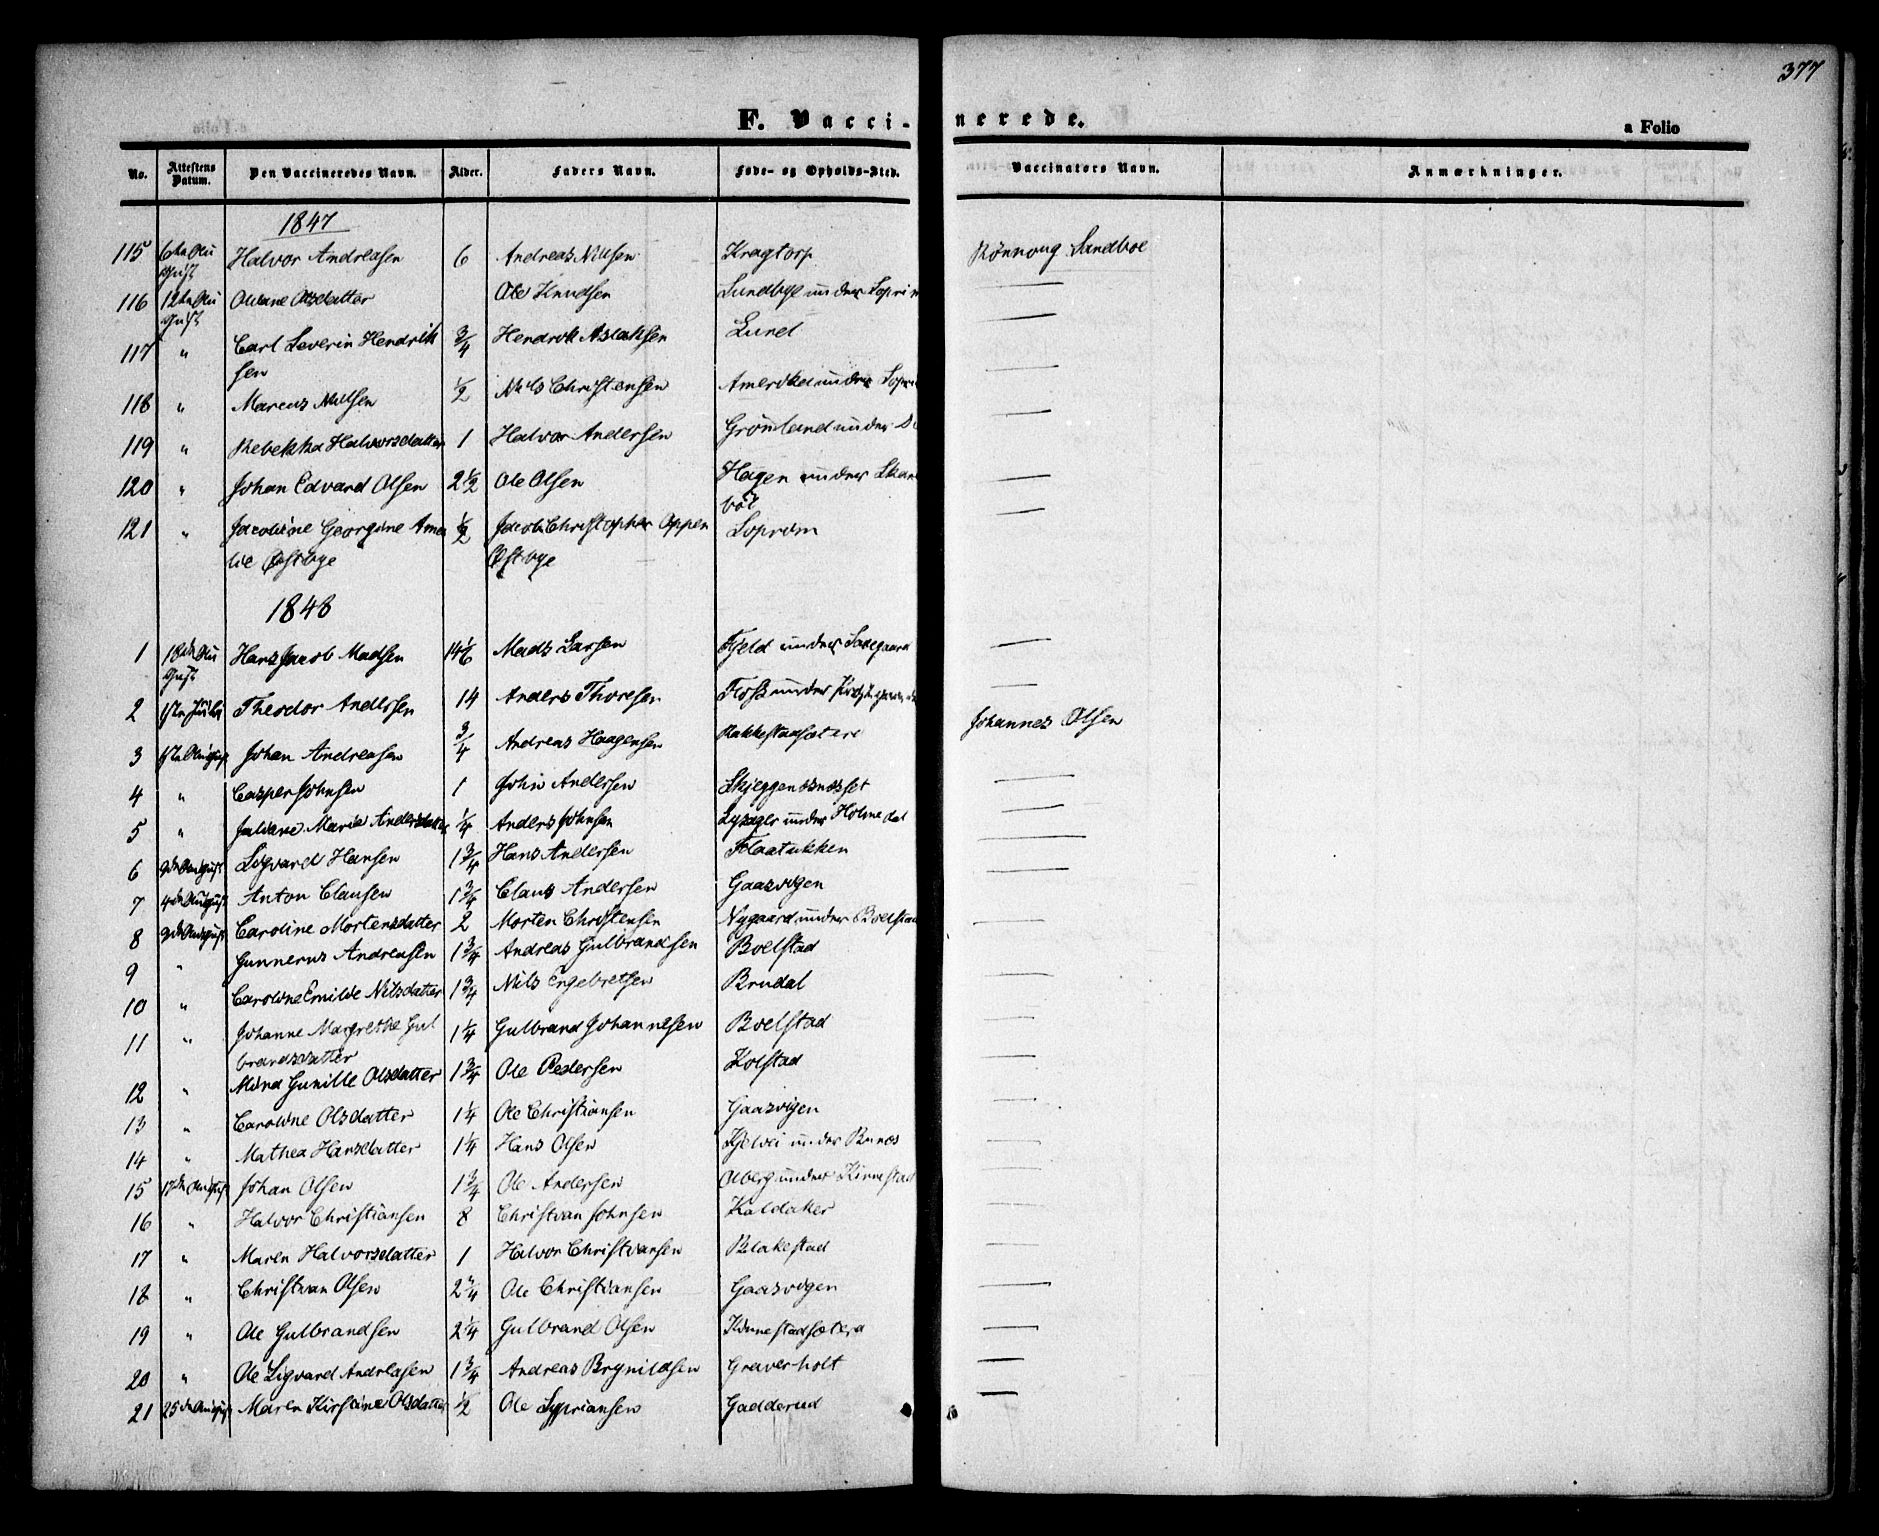 377
F. Vaccinerede.
a Folio
No. Attestens Datum. Den Vaccineredes Navn. Alder. Faders Navn. Føde- og Opholds-Sted. Vaccinators Navn. Anmærkninger.
1847
115 6te Au Halvor Andreasen 6 Andreas Nilsen Kragtorp Rønnoug Sandboe
gust
116 12te Au Oliane Olsdatter Ole Knudsen Lundbye under Soprim —
gust
117 " Carl Severin Hendrik 3/4 Hendrik Aslaksen Lund —
sen
118 " Marcus Nilsen 1/2 Nils Christensen Amerika under Sopri —
119 " Rebekka Halvorsdatter 1 Halvor Andersen Grønland under —
120 " Johan Edvard Olsen 2 1/2 Ole Olsen Hagen under Skar —
völ
121 " Jacobine Georgine Ama 1/2 Jacob Christopher Oppen Soprim —
lie Østbye Østbye
1848
1 18de Au Hans Jacob Madsen 14 1/6 Mads Larsen Fjeld under Saxegaard —
gust
2 Theodor Andersen 14 Anders Thoresen Floß under —
3 Johan Andreasen 3/4 Andreas Haagensen Rakkestadsætere Johannes Olsen
4 " Casper Johnsen 1 John Andersen Skjeggenesnæsset —
5 " Juliane Maria Andersdatter 1/4 Anders Johnsen Lysager under Holmedal —
6 2de August Sigvard Hansen 1 3/4 Hans Andersen Flaatukken —
7 4de August Anton Clausen 1 3/4 Claus Andersen Gaasvigen —
8 2de August Caroline Mortensdatter 2 Morten Christensen Nygaard under Bölstad —
9 " Gunnerus Andreasen 1 3/4 Andreas Gulbrandsen Boelstad
10 " Caroline Emilie Nilsdatter 1 3/4 Nils Engebretsen Brudal —
11 " Johanne Margrethe Gul 1 1/4 Gulbrand Johannesen Boelstad —
brandsdatter
12 " Mina Gunille Olsdatter 1 3/4 Ole Pedersen Kolstad —
13 " Caroline Olsdatter 1 1/4 Ole Christiansen Gaasvigen —
14 " Mathea Hansdatter 1 1/4 Hans Olsen under —
15 17de August Johan Olsen 1 3/4 Ole Andersen Oberg under Kinnestad —
16 " Halvor Christiansen 8 Christian Johnsen Kaldaker —
17 " Maren Halvorsdatter 1 Halvor Christiansen Blakestad —
18 " Christian Olsen 2 1/4 Ole Christiansen Gaasvigen —
19 " Ole Gulbrandsen 2 1/4 Gulbrand Olsen Kinnestadsætera —
20 " Ole Sigvard Andreasen 1 3/4 Andreas Brynildsen Graverholt —
21 25de August Maren Kirstine Olsdatter 1/2 Ole Sypriansen Gadderud —